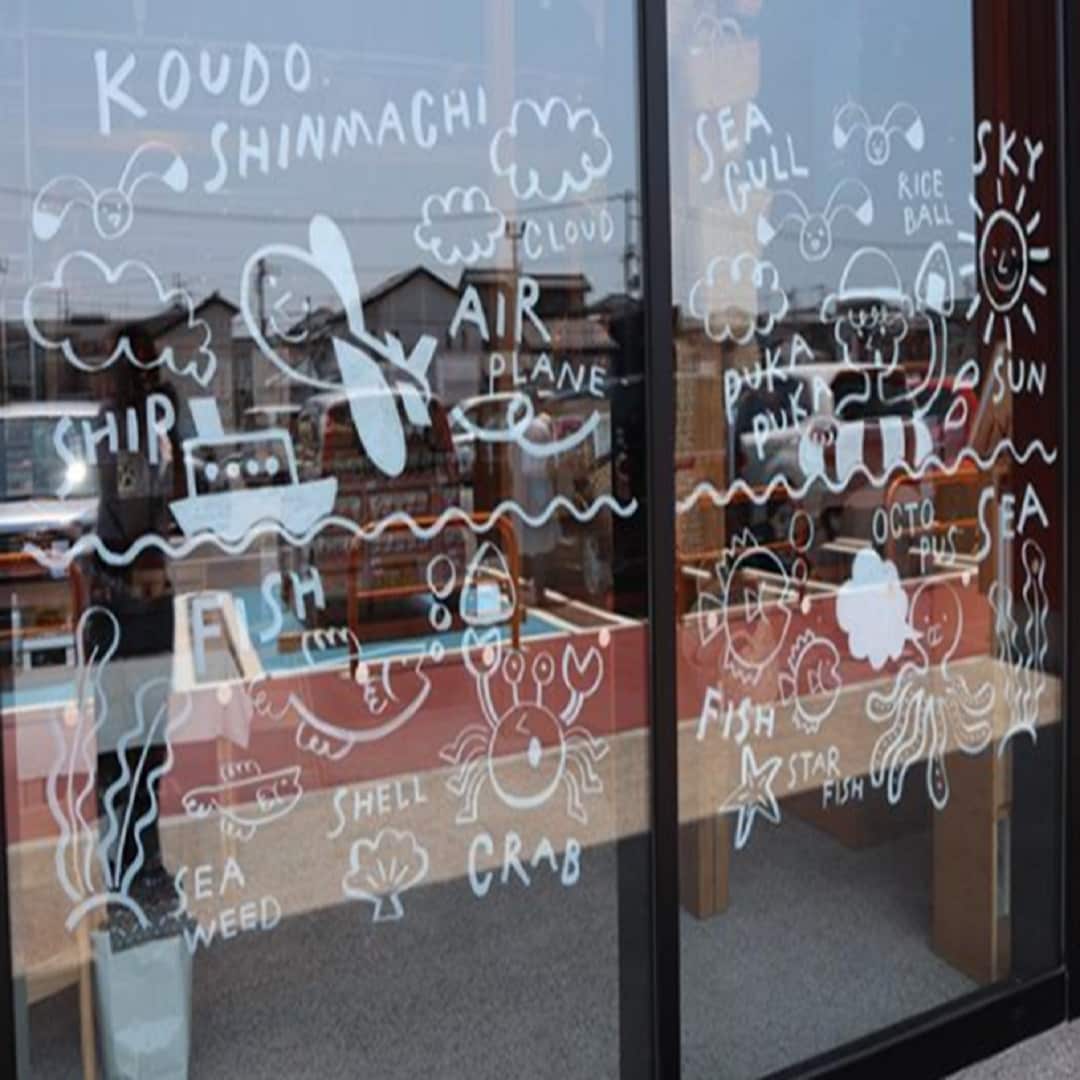 KOUDO
SHINMACHI
CLOUD
AIR
PLANE
SHIP
FISH
SHELL
CRAB
SEA
WEED
SEA
GULL
RICE
BALL
SKY
PUKA
PUKA
SUN
OCTO
PUS
SEA
FISH
STAR
FISH